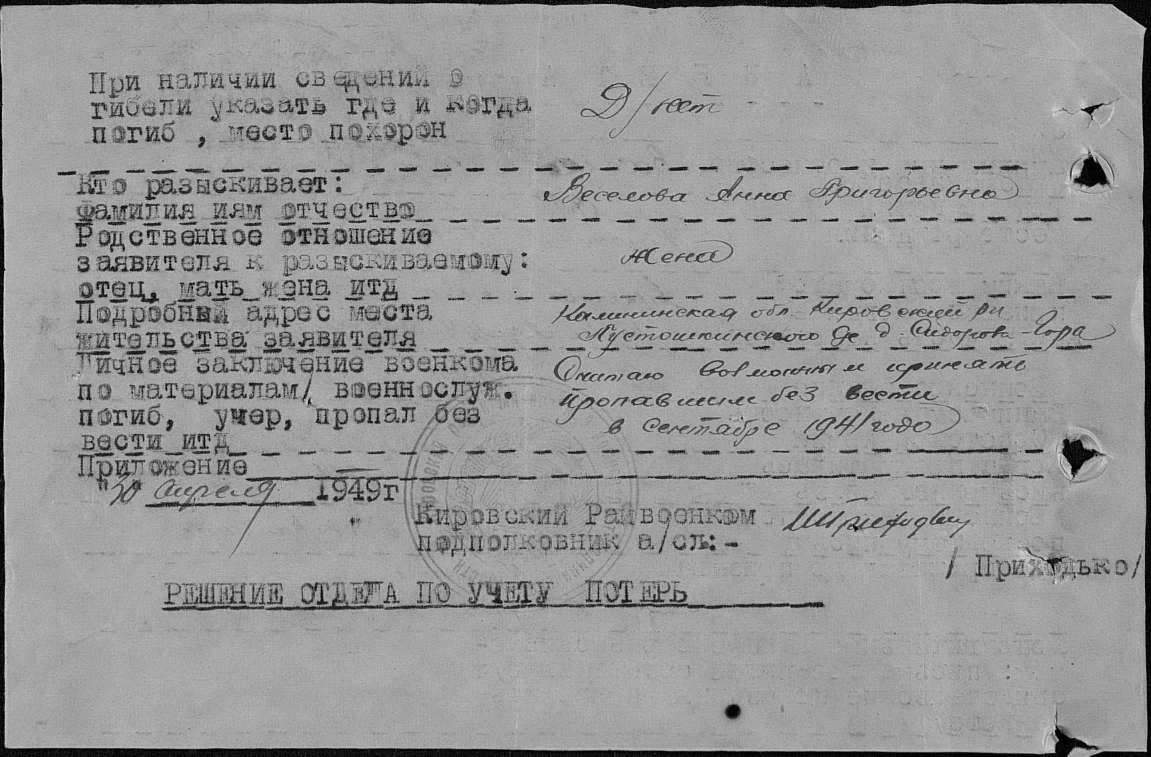 При наличии сведений о
гибели указать где и когда
погиб , место похорон
Д/нет
Кто разыскивает:
фамилия иям отчество
Веселова Анна Григорьевна
Родственное отношение
заявителя к разыскиваемому:
отец, мать жена итд
жена
Подробный адрес места
жительства заявителя
Калининская обл. Кировский рн
Пустошкинского д. Сидорова Гора
Личное заключение военкома
по материалам/ военнослуж.
погиб, умер, пропал без
вести итд
Считаю возможным
пропавшим без вести
в сентябре 1941 года
Приложение
"30" апреля 1949г
Кировский Райвоенком
подполковник а/сл:-
/ Приходько/
РЕШЕНИЕ ОТДЕЛА ПО УЧЕТУ ПОТЕРЬ